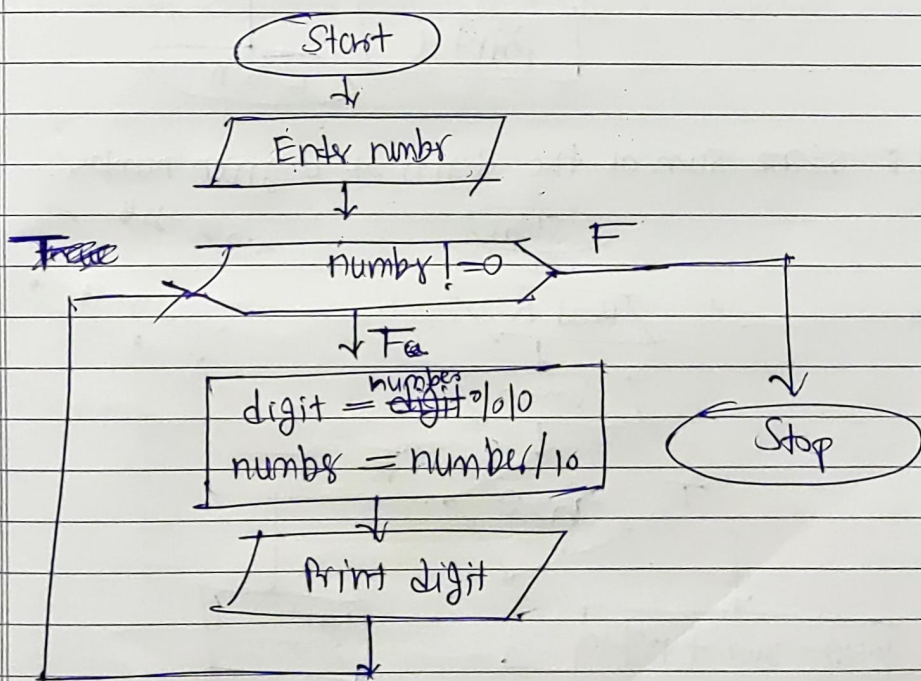 Start
Enter numbr
numbr != 0
F
T
digit = number % 10
numbr = number/10
Stop
Print digit